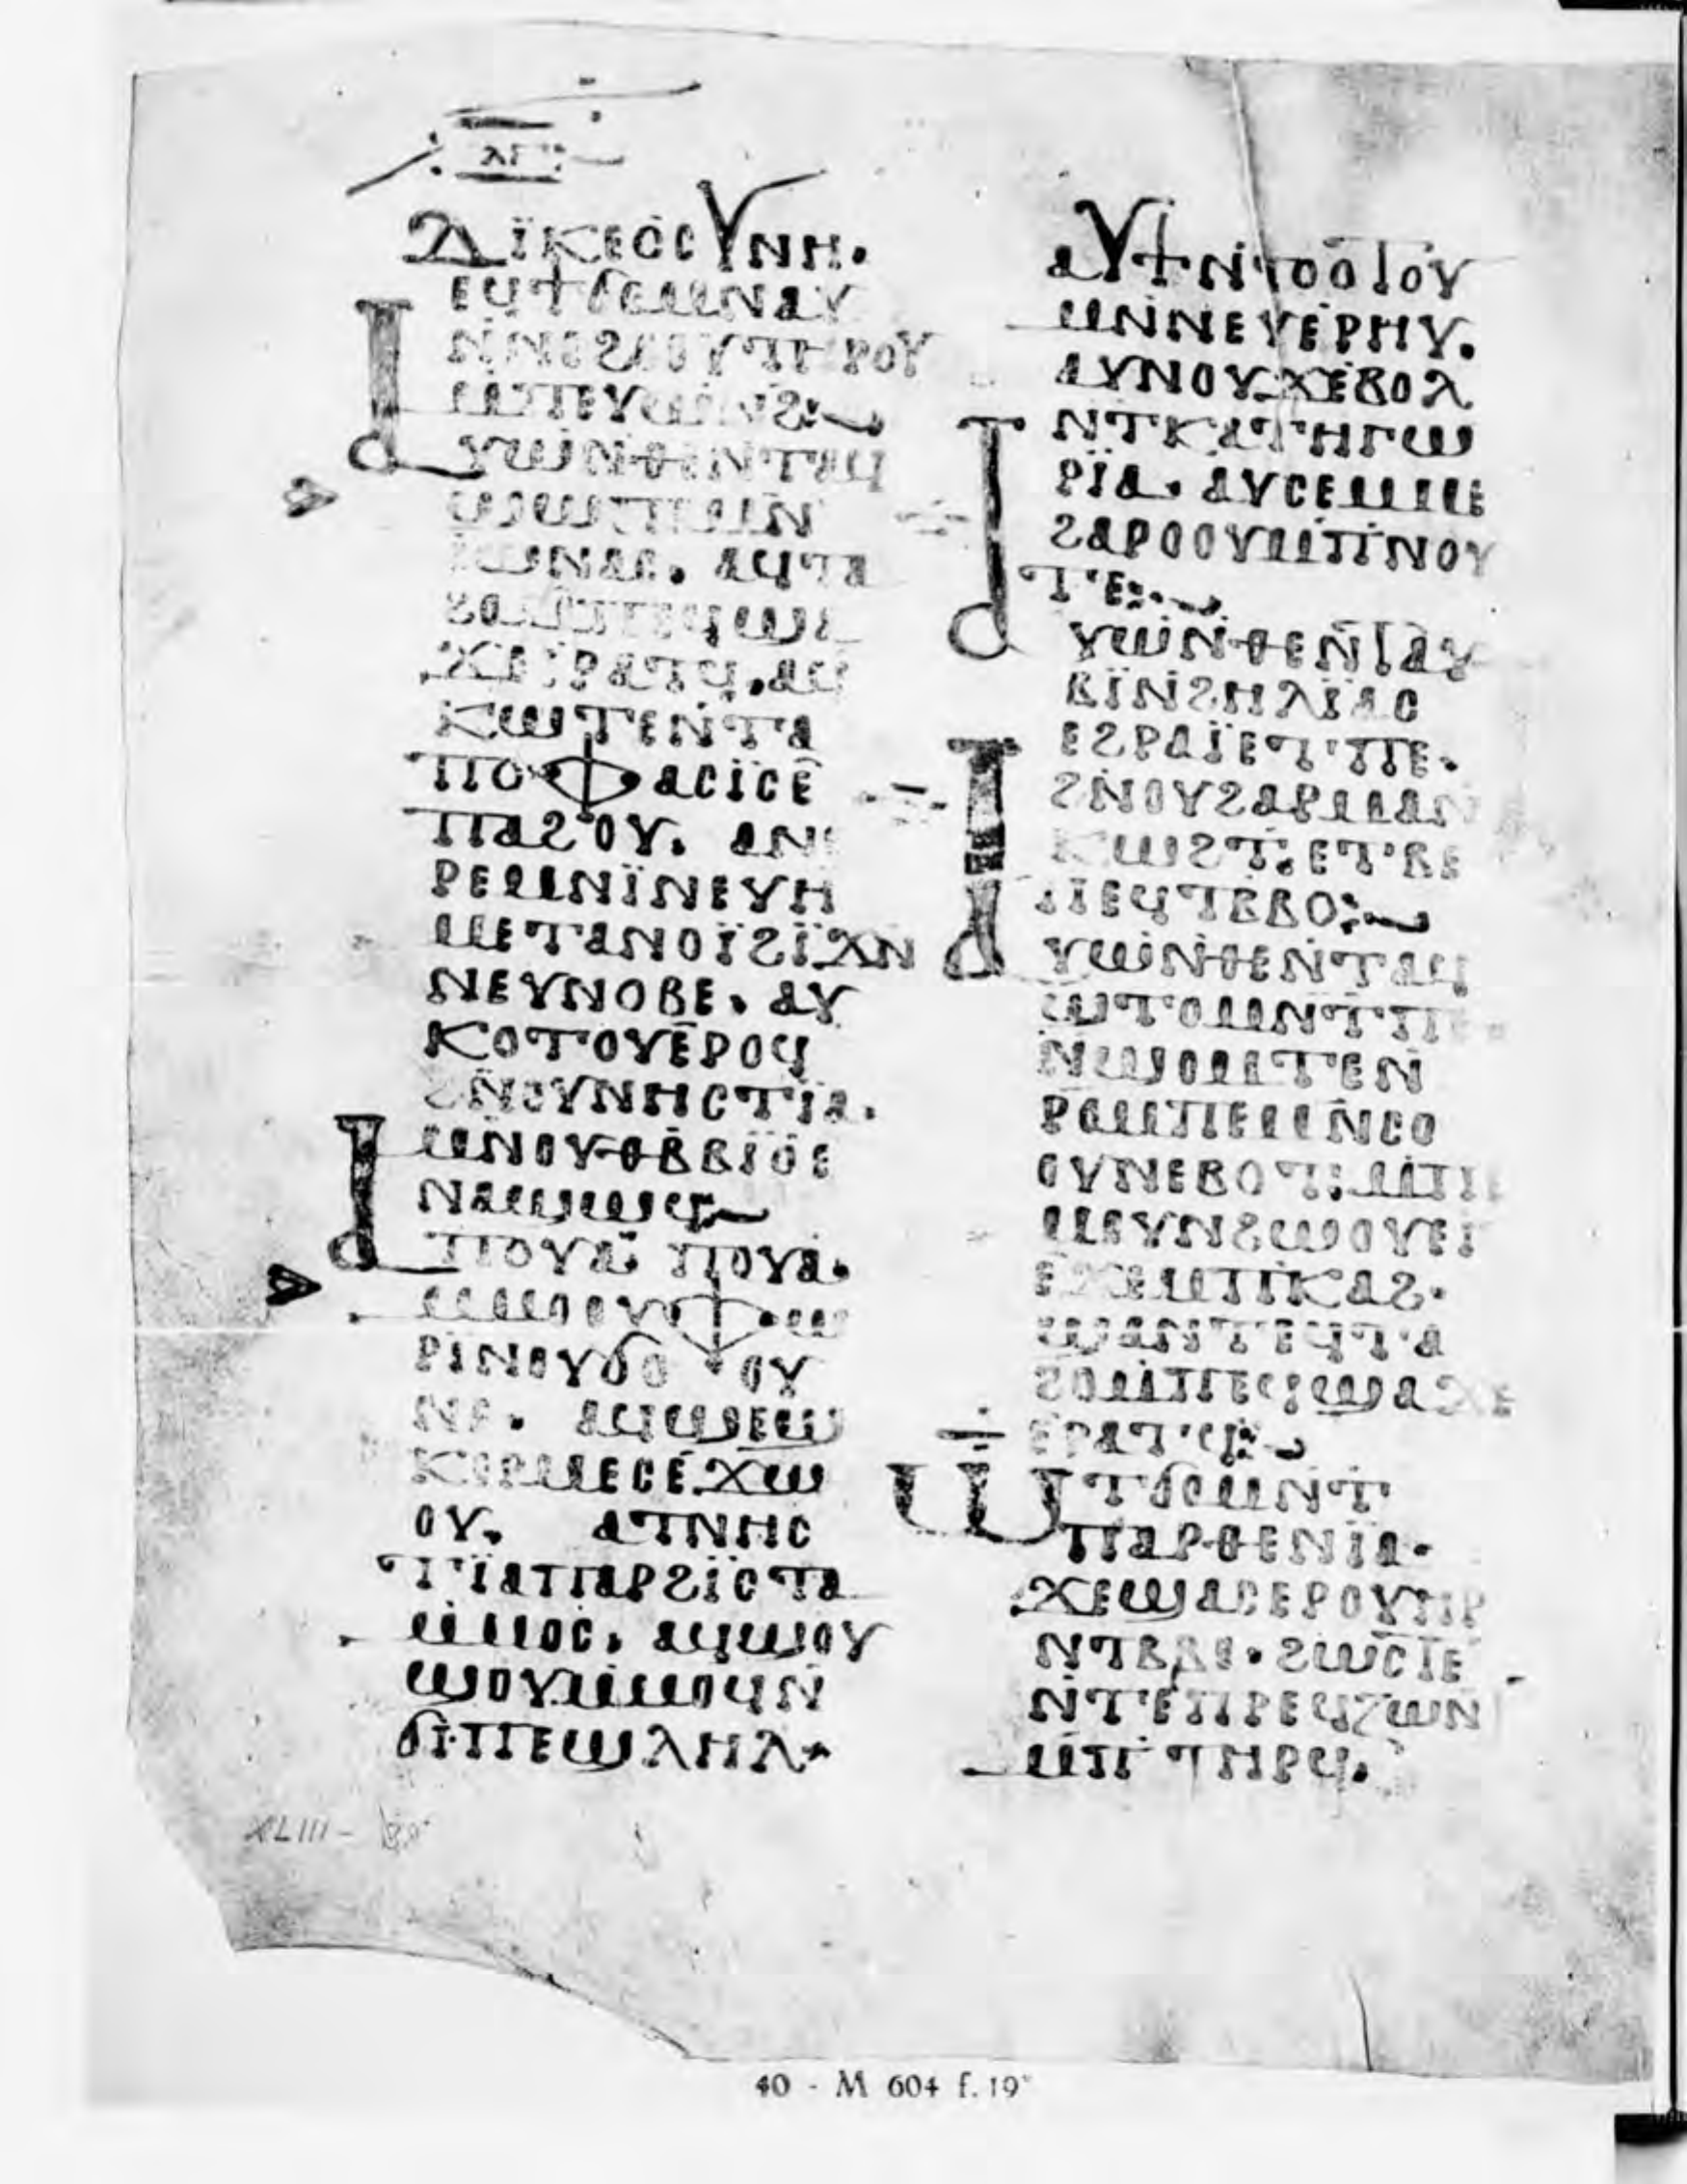 ⲗⲅ
ⲇⲓ̈ⲕⲉⲟⲥⲩⲛⲏ.
ⲉϥϯϭⲉⲙⲛⲁⲩ
ⲙⲡⲉⲩⲱⲛϩ
ⲁⲩⲱⲛⲑⲉⲛⲧⲁϥ
ⲓ̈ⲱⲛⲁⲥ. ⲁϥⲧⲁ
ϩⲟ ⲙⲡⲉϥϣⲁ
ϫⲉⲉⲣⲁⲧϥ. ⲁϥ
ⲕⲱⲧⲉⲛⲧⲁ
ⲡⲟⲫⲁⲥⲓⲥⲉ
ⲡⲁϩⲟⲩ. ⲁⲛ
ⲣⲉⲙⲛⲓ̈ⲛⲉⲩⲏ
ⲙⲉⲧⲁⲛⲟⲓ̈ϩⲓ̈ϫⲛ
ⲛⲉⲩⲛⲟⲃⲉ. ⲁⲩ
ⲕⲟⲧⲟⲩⲉⲣⲟϥ
ϩⲛⲟⲩⲛⲏⲥⲧⲓ̈ⲁ.
ⲙⲛⲟⲩⲑⲃⲃⲓ̈ⲟⲉ
ⲛⲁϣⲱϥ
ⲁⲡⲟⲩⲁ ⲡⲟⲩⲁ.
ⲙⲙⲟⲟⲩⲫⲱ
ⲣⲓⲛⲟⲩϭⲟⲟⲩ
ⲛⲉ. ⲁϥϣⲉϣ
ⲕⲉⲣⲙⲉⲥⲉϫⲱ
ⲟⲩ. ⲁⲧⲛⲏⲥ
ⲧⲓ̈ⲁⲡⲁⲣϩⲓ̈ⲥⲧⲁ
ⲙⲙⲟⲥ. ⲁϥϣⲟⲩ
ϣⲟⲩⲙⲙⲟϥⲛ
ϭⲓⲡⲉϣⲗⲏⲗ
ⲁⲩϯⲛⲧⲟⲟⲧⲟⲩ
ⲙⲛⲛⲉⲩⲉⲣⲏⲩ.
ⲁⲩⲛⲟⲩϫⲉⲃⲟⲗ
ⲛⲧⲕⲁⲧⲏⲅⲱ
ⲣⲓ̈ⲁ. ⲁⲩⲥⲉⲙⲙⲉ
ϩⲁⲣⲟⲟⲩⲙⲡⲛⲟⲩ
ⲧⲉ:
ⲁⲩⲱⲛⲑⲉⲛⲧⲁⲩ
ϥⲓ̈ⲛϩⲏⲗⲓ̈ⲁⲥ
ⲉϩⲣⲁⲓ̈ⲉⲧⲡⲉ.
ϩⲛⲟⲩϩⲁⲣⲙⲁⲛ
ⲕⲱϩⲧ. ⲉⲧⲃⲉ
ⲡⲉϥⲧⲃⲃⲟ:
ⲁⲩⲱⲛⲑⲉⲛⲧⲁϥ
ϣⲧⲟⲙⲛⲧⲡⲉ
ⲛϣⲟⲙⲧⲉⲛ
ⲣⲟⲙⲡⲉⲙⲛⲥⲟ
ⲟⲩⲛⲉⲃⲟⲧ. ⲙⲡⲉ
ⲙⲟⲩⲛϩⲱⲟⲩⲉⲓ
ⲉϫⲉⲙⲡⲕⲁϩ.
ϣⲁⲛⲧⲉϥⲧⲁ
ϩⲟⲙⲡⲉϥϣⲁϫⲉ
ⲉⲣⲁⲧϥ:
ⲱⲧϭⲟⲙⲛⲧ
ⲡⲁⲣⲑⲉⲛⲓ̈ⲁ.
ϫⲉϣⲁⲥⲉⲣⲟⲩⲏⲣ
ⲛⲧⲃⲃⲟ. ϩⲱⲥⲧⲉ
ⲛⲧⲉⲡⲣⲉϥϩⲱⲛ
ⲙⲡⲧⲏⲣϥ.
XLIII –
40 - M 604 f. 19ʳ